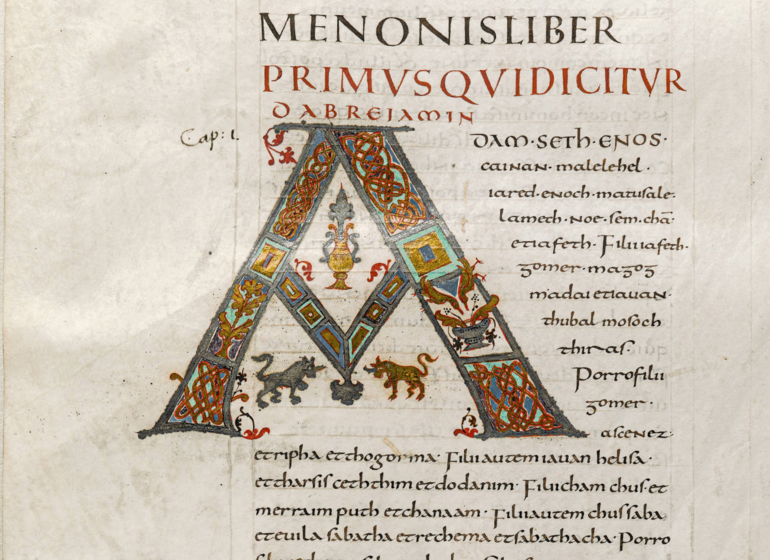 MENONISLIBER
PRIMVSQVIDICITVR
DABREIAMIN
Cap: I.
ADAM·SETH·ENOS·
CAINAN· malelehel·
iared·enoch·matusale·
lamech·Noe·sem·chā·
etiafeth· Filiiiafeth·
gomer·magog
madaietiauan·
thubal mosoch
thiras·
Porrofilii
gomer·
ascenez·
etripha etthogorma· Filiiautem iauan helisa·
ettharsis ceththim etdodanim· Filiicham chus·et
merraim phuth etchanaam· Filiiautem chus saba
eteuila sabatha etrechema etsabathacha· Porro